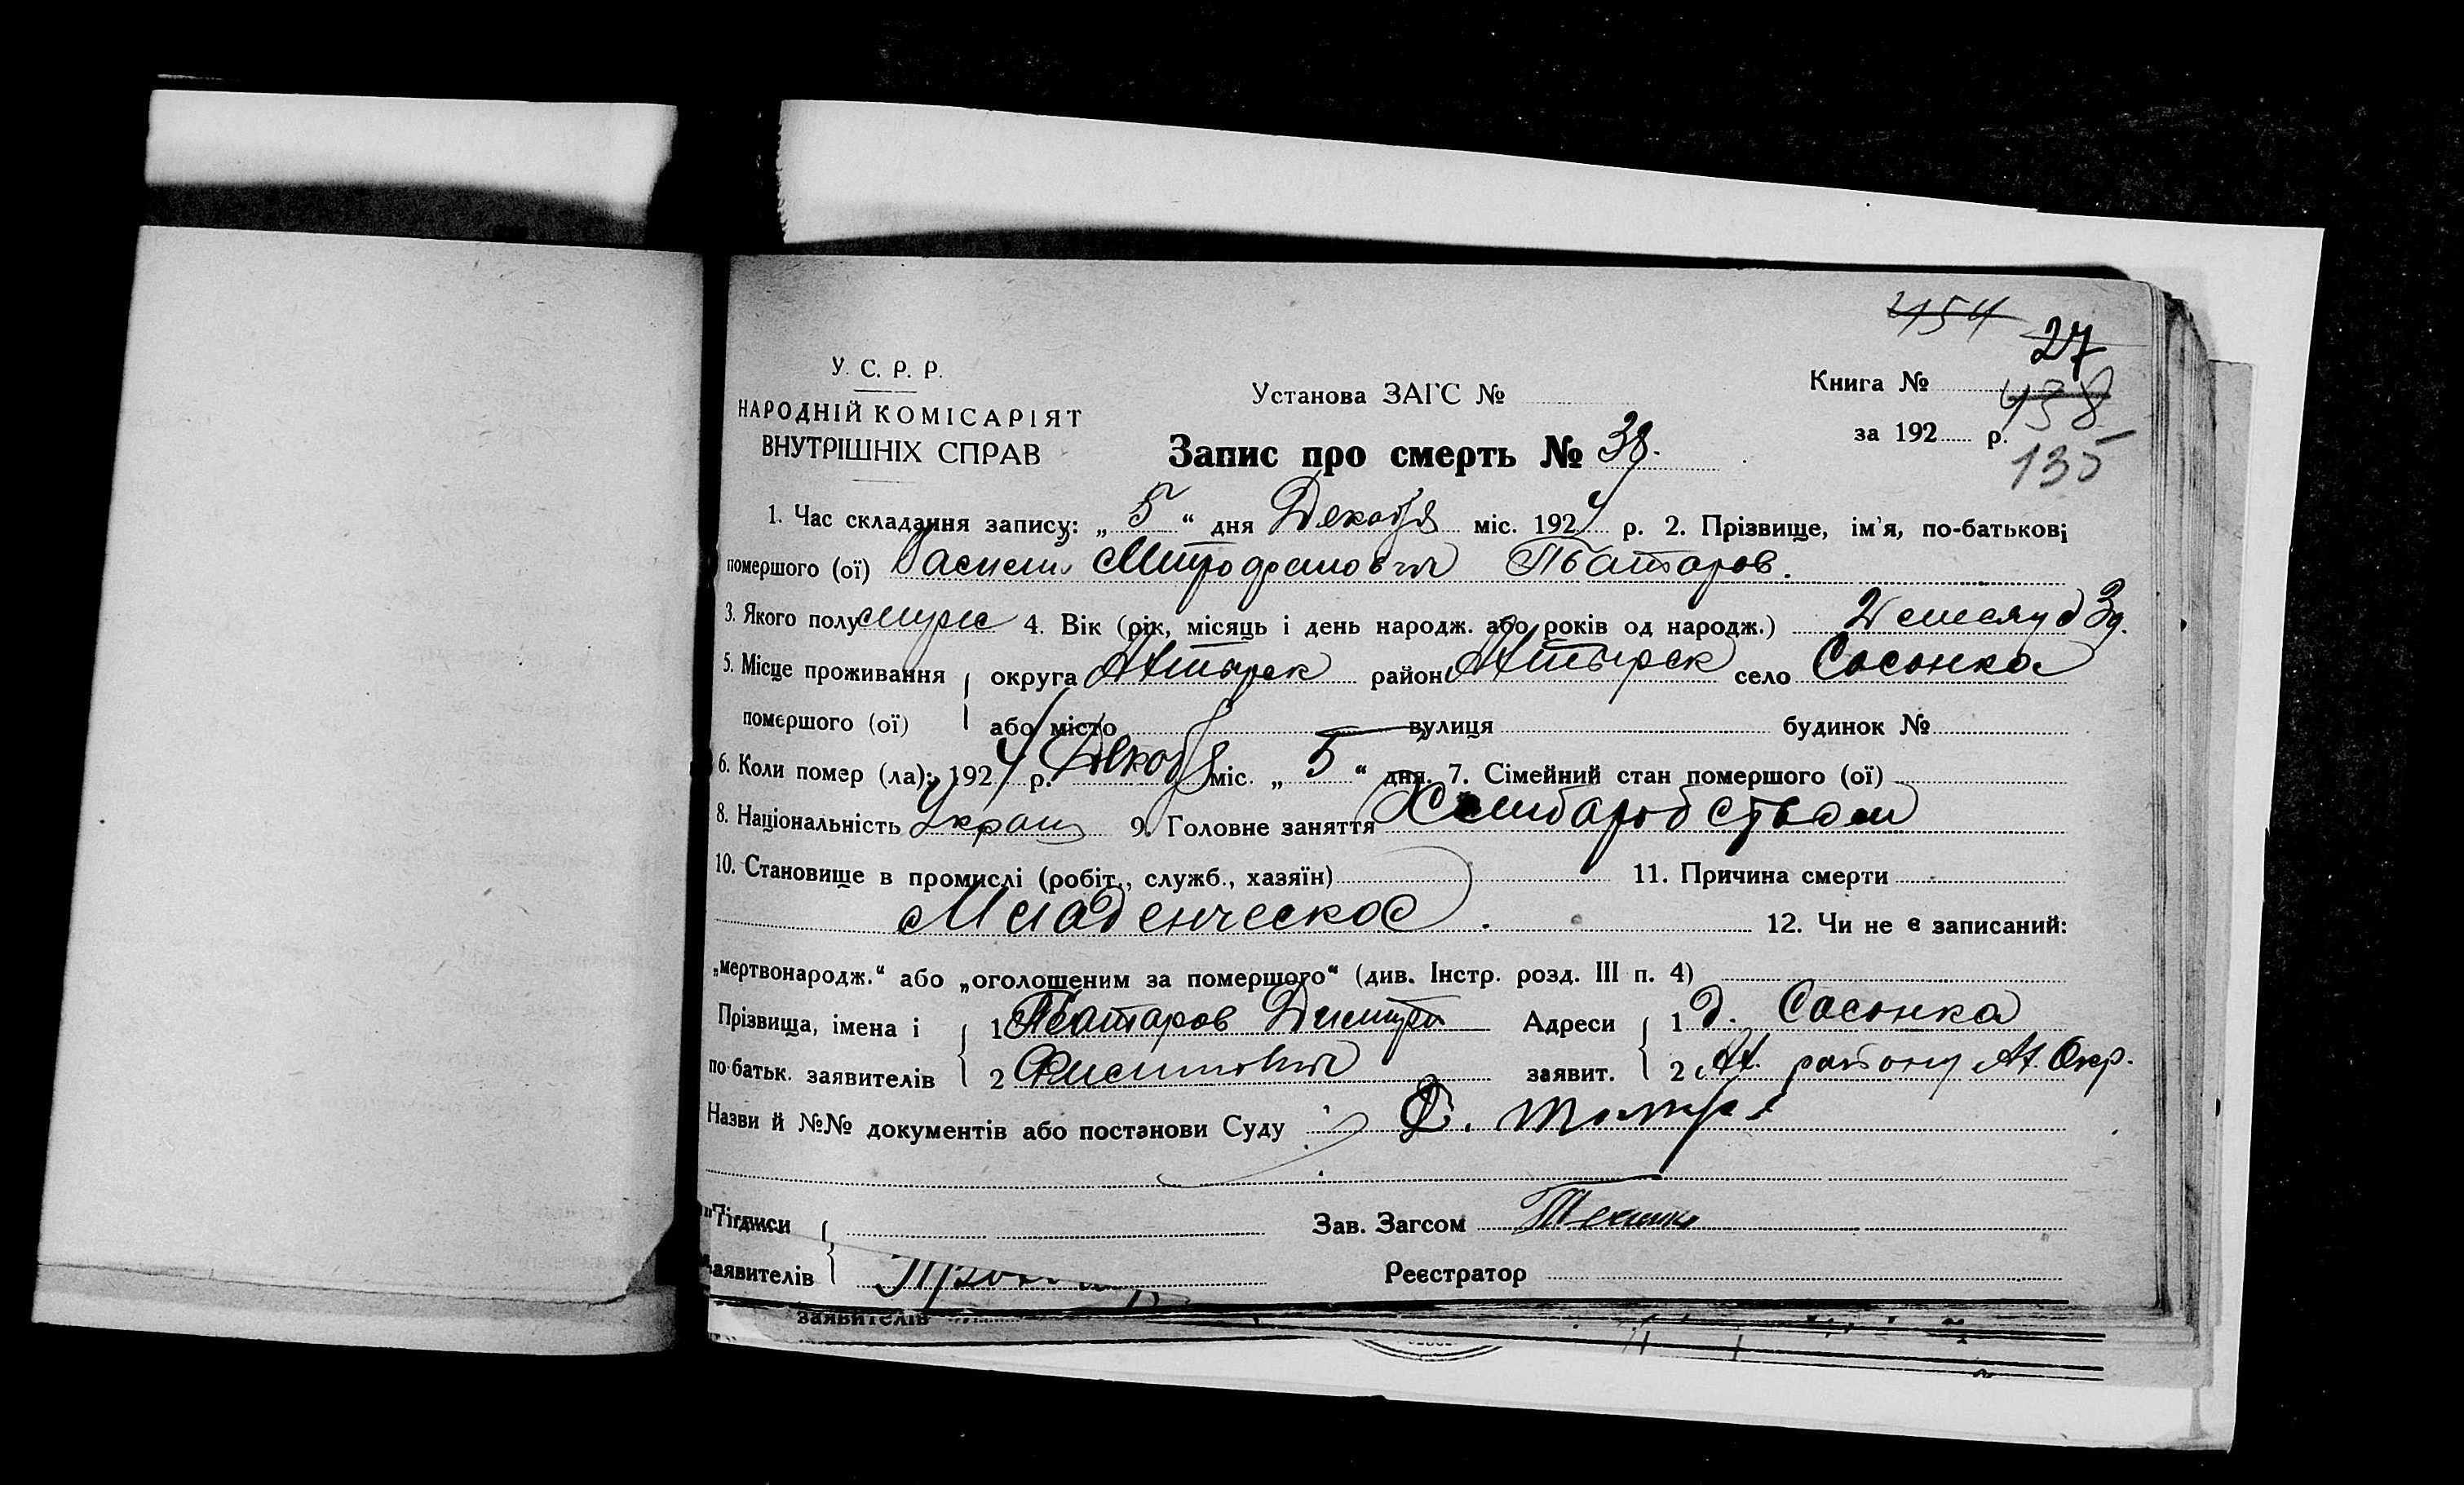 2154
27
У. С. Р. Р.
Установа ЗАГС №
Книга № 438
НАРОДНІЙ КОМІСАРІЯТ
за 192 р.
ВНУТРІШНІХ СПРАВ
Запис про смерть № 38.
135
1. Час складання запису: „ 5 “ дня Декабря міс. 1924 р. 2. Прізвище, ім'я, по-батькові
померщого (ої) Василий Митрофанович
3. Якого полу муж 4. Вік (рік, місяць і день народж. або років од народж.) 3д.
5. Місце проживання округа Ахтырск район Ахтырск село Сосонка
помершого (ої) або місто вулиця будинок №
6. Коли помер (ла): 1924 р. Декабря міс. „ 5 “ дня. 7. Сімейний стан помершого (ої)
8. Національність Украин 9. Головне заняття
10. Становище в промислі (робіт., служб., хазяїн) 11. Причина смерти
Младенческое. 12. Чи не є записаний:
„мертвонародж.“ або „оголошеним за помершого“ (див. Інстр. розд. III п. 4)
Прізвища, імена і 1 Дмитрий Адреси 1 д. Сосонка
по-батьк. заявителів 2 заявит. 2 Ах. району Ах. Окр.
Назви й №№ документів або постанови Суду
Підписи Зав. Загсом
заявителів Реєстратор
заявителів